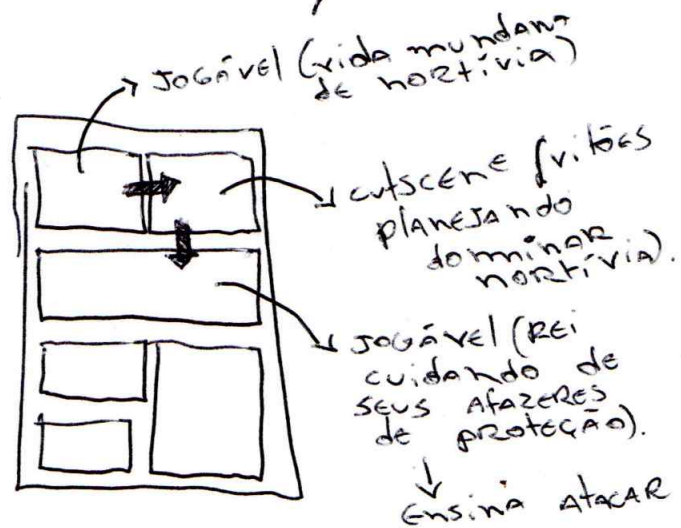 JOGÁVEL (vida mundana
de nortívia)
cutscene (vilões
planejando
dominar
nortívia).
JOGÁVEL (REi
cuidando de
seus afazeres
de proteção).
Ensina atacar